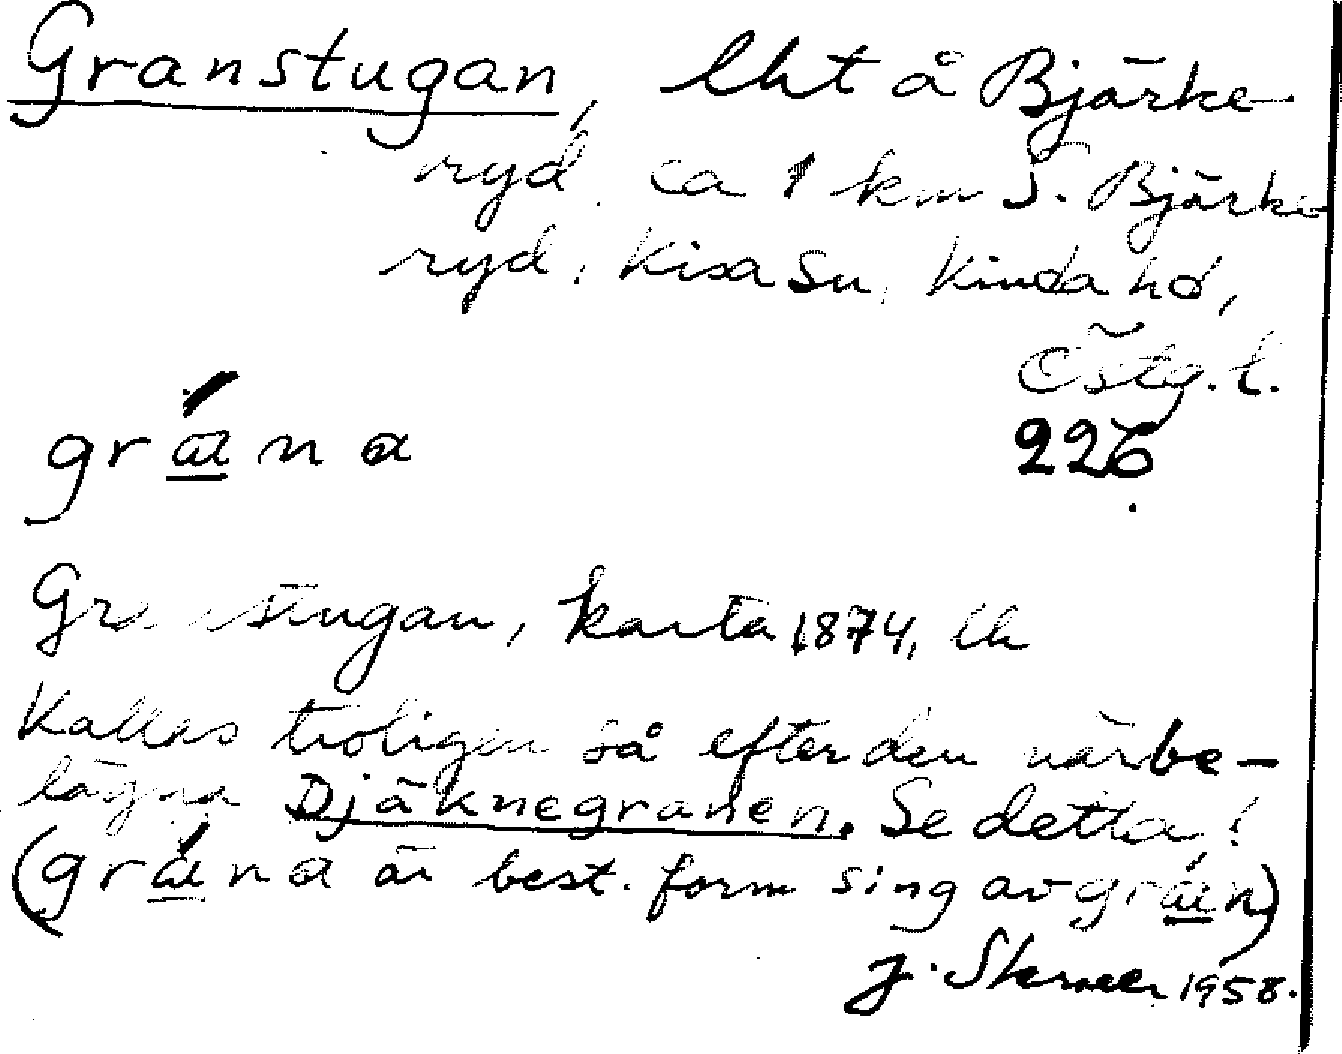 Granstugan, lht å Bjärke
ryd, ca 1 km S. Bjärke
ryd, Kisa sn, Kinda hd,
Östg. l.
gráṉa
226
Granstugan, karta 1874, lh
Kallas troligen så efter den närbe-
lägna Djäknegranen. Se detta!
(gräna är best. form sing av grän)
J. 1958.